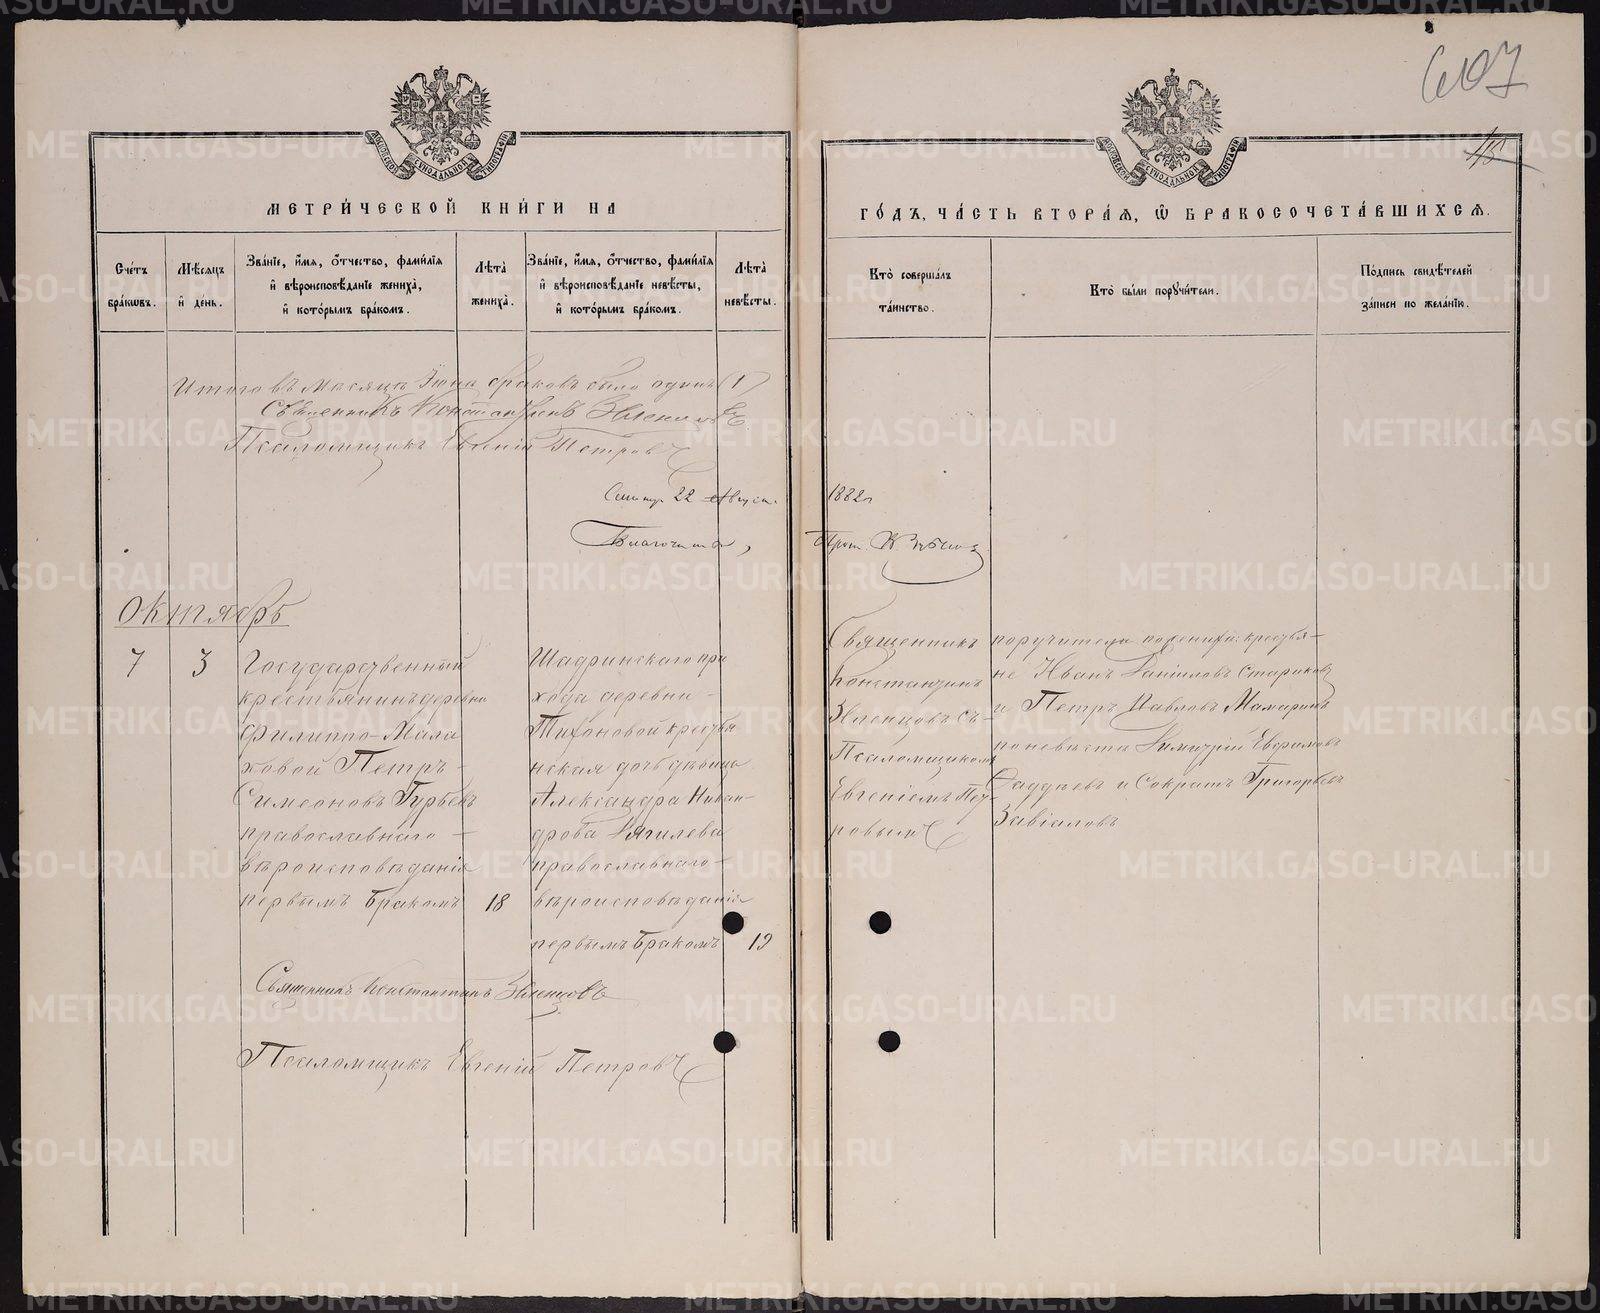 607
115
МОСКОВСКОЙ СѴНОДАЛЬНОЙ ТИПОГРАФІИ
МОСКОВСКОЙ СѴНОДАЛЬНОЙ ТИПОГРАФІИ
МЕТРИ́ЧЕСКОЙ КНИ́ГИ НА
ГО́ДЪ, ЧА́СТЬ ВТОРА́Ѧ, Ѡ҆ БРАКОСОЧЕТА́ВШИХСѦ.
Сче́тъ бра́кѡвъ.
Мѣ́сѧцъ и҆ де́нь.
Зва́нїе, и҆́мѧ, ѻ҆́тчество, фами́лїѧ и҆ вѣроисповѣ́данїе жениха̀, и҆ кото́рымъ бра́комъ.
Лѣта̀ жениха̀.
Зва́нїе, и҆́мѧ, ѻ҆́тчество, фами́лїѧ и҆ вѣроисповѣ́данїе невѣ́сты, и҆ кото́рымъ бра́комъ.
Лѣта̀ невѣ́сты.
Кто̀ соверша́лъ та́инство.
Кто̀ бы́ли порꙋчи́тели.
По́дпись свидѣ́телей за́писи по жела́нїю.
Итого въ месяцѣ Іюнѣ браковъ было одинъ (1)
Священникъ Константинъ
Псаломщикъ Евгеній Петровъ
22 Август. 1882 г.
Благочинный, Прот.
Октябрь
7
3
Государственный
крестьянинъ деревни
Филиппо-Мала
ховой Петръ
Симеоновъ Гурьевъ
православнаго
вѣроисповѣданія
первымъ бракомъ
18
Шадринскаго при
хода деревни
Тихоновой крестья
нская дочь дѣвица
Александра Никан-
дрова Лягилева
православнаго
вѣроисповѣданія
первымъ бракомъ
19
Священникъ
Константинъ
Зеленцовъ съ
Псаломщикомъ
Евгеніемъ Пет-
ровымъ
поручители по женихѣ: крестья-
не Иванъ Даніиловъ Стариковъ
и Петръ Павловъ Мамаринъ
по невѣстѣ Димитрій Евфимовъ
Фаддѣевъ и Сократъ Григорьевъ
Завіаловъ
Священникъ Константинъ Зеленцовъ
Псаломщикъ Евгеній Петровъ
METRIKI.GASO-URAL.RU